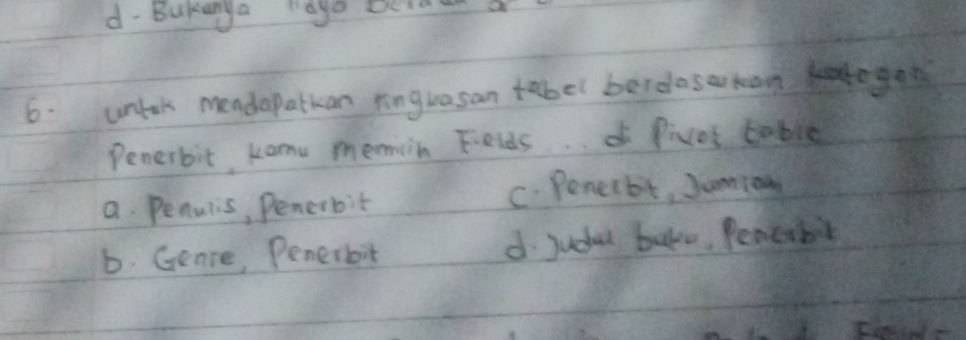 d. Bukunya
6. untuk mendapatkan ringkasan tabel berdasarkan kategori
Penerbit, kamu memilih Fields ... di Pivot table
a. Penulis, Penerbit
c. Penerbit, Jumlah
b. Genre, Penerbit
d. Judul buku, Penerbit